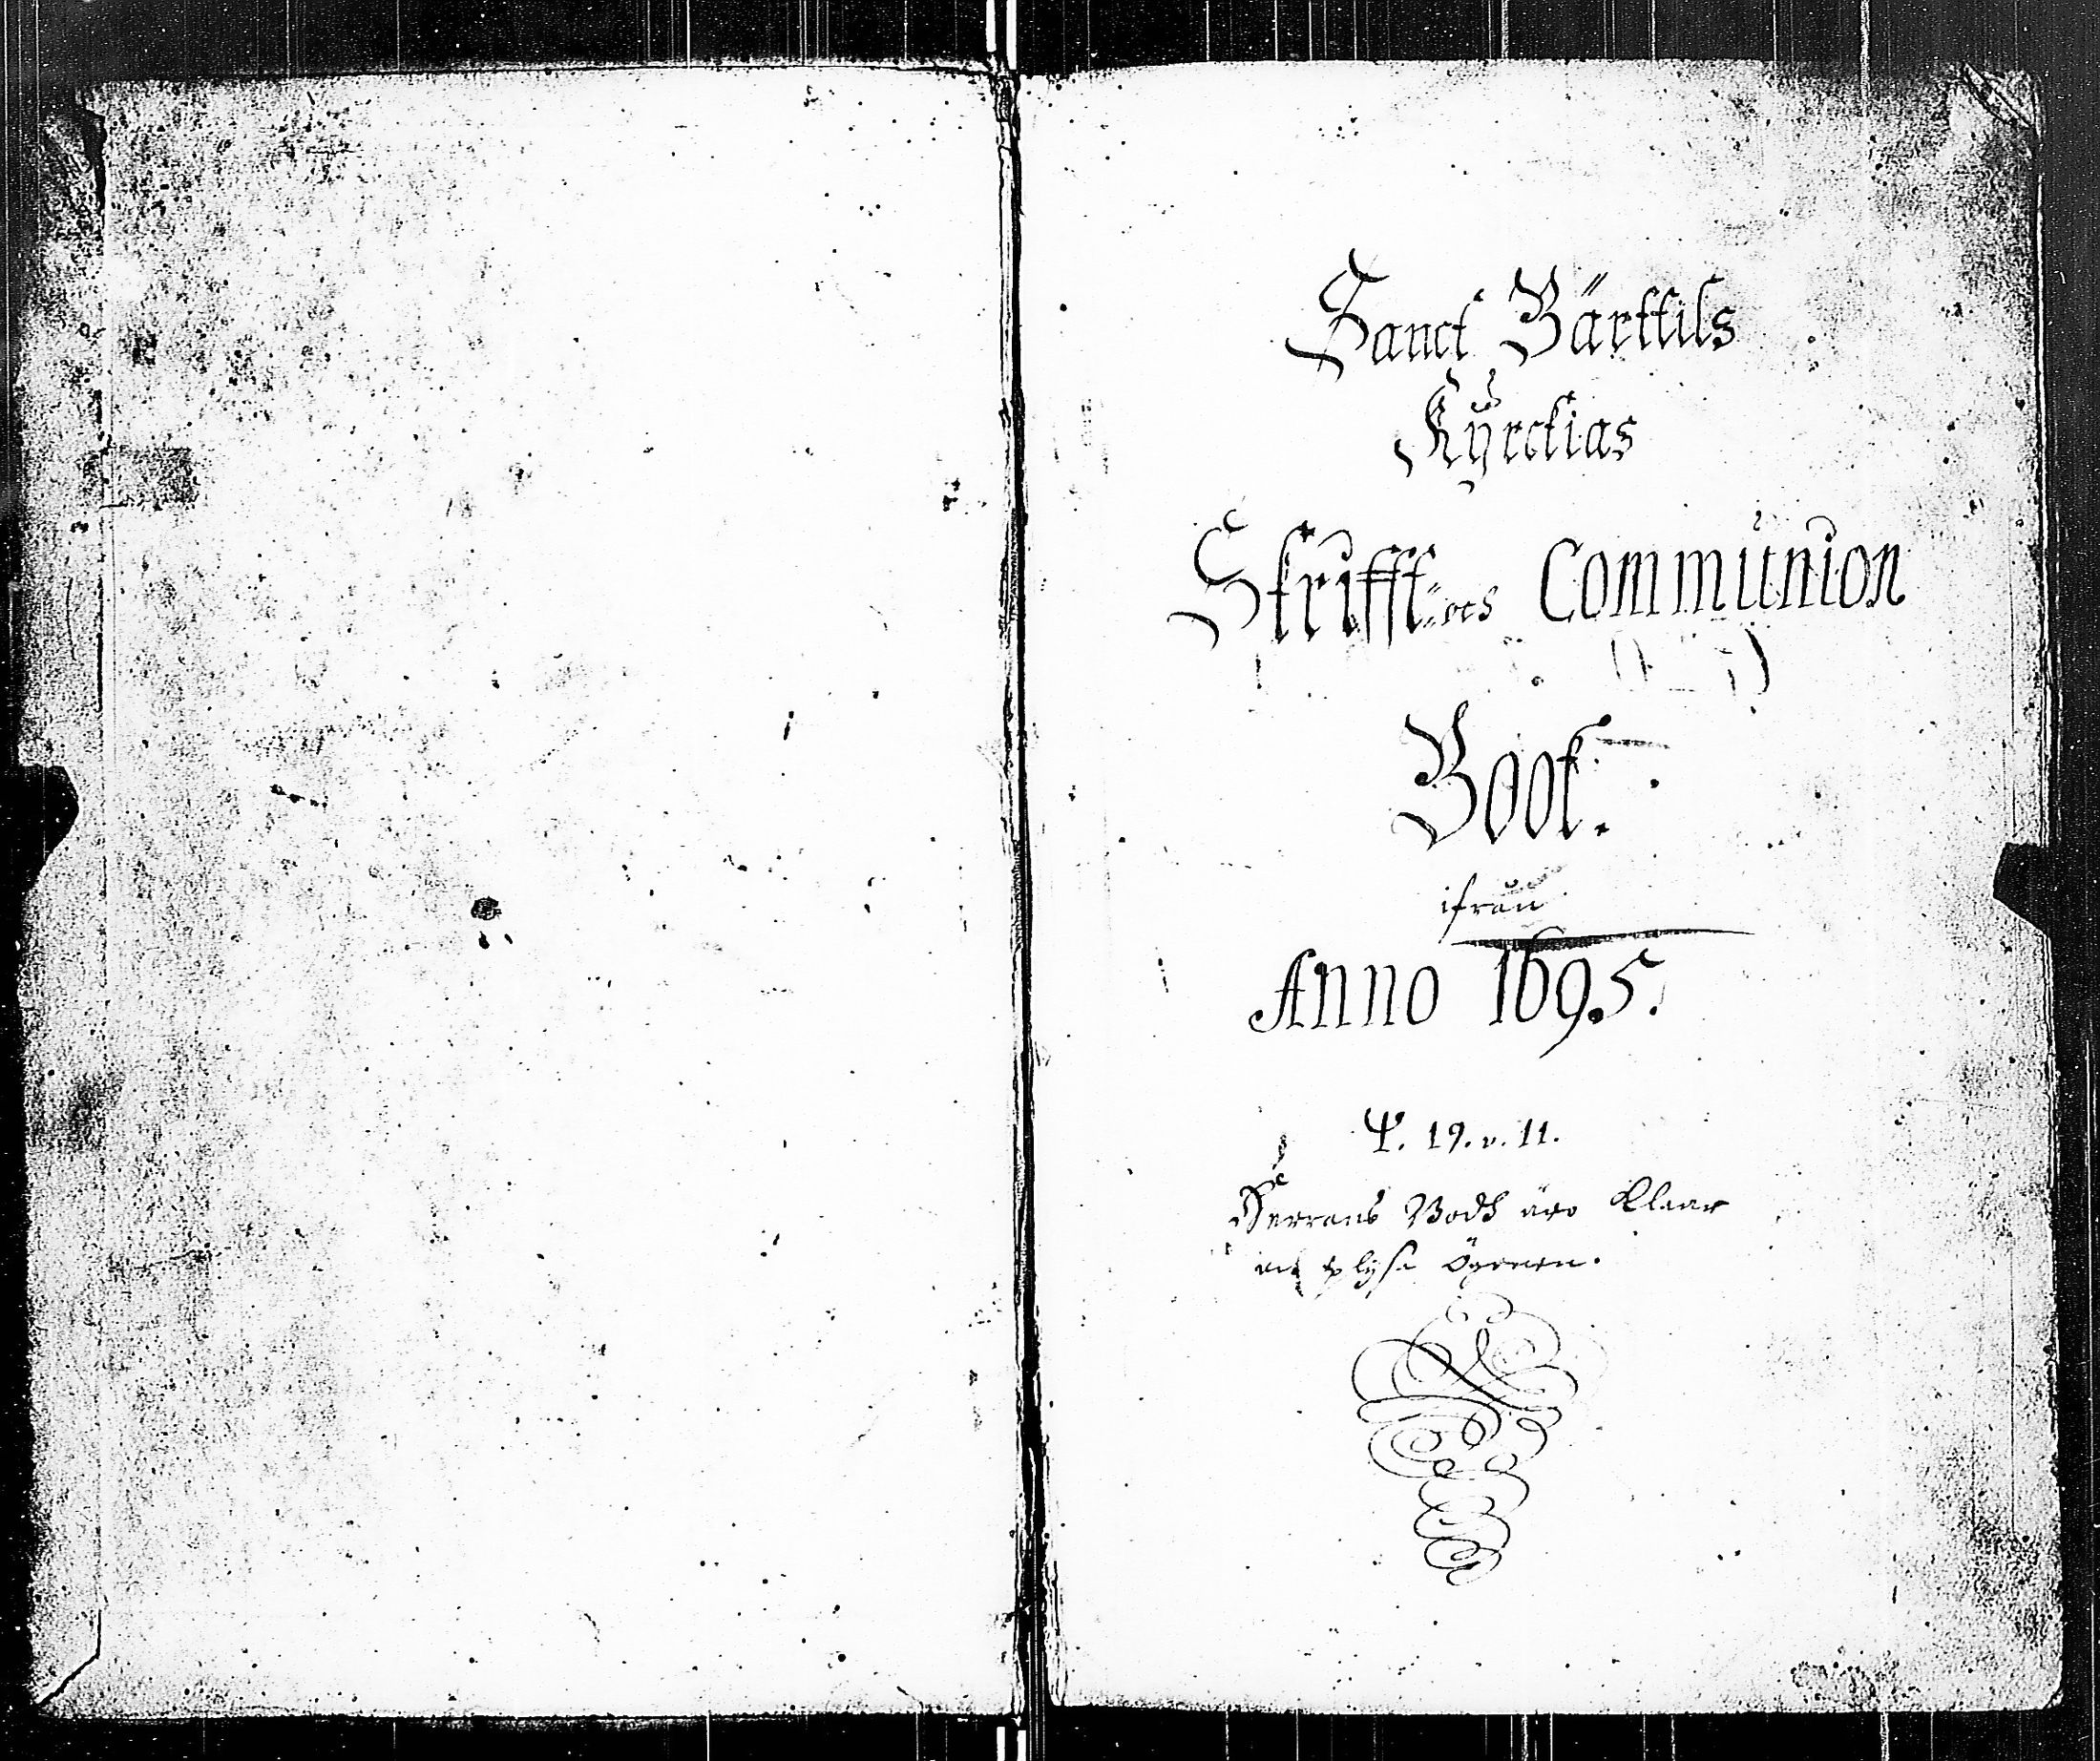 Sanct Bärttils
Kÿrckias
Skrifft= ocs Communion
Book.
ifrån
Anno 1695.
Ψ. 19. v. 11.
Herrans Bodh äro Klaar
och vplysa ögonen.